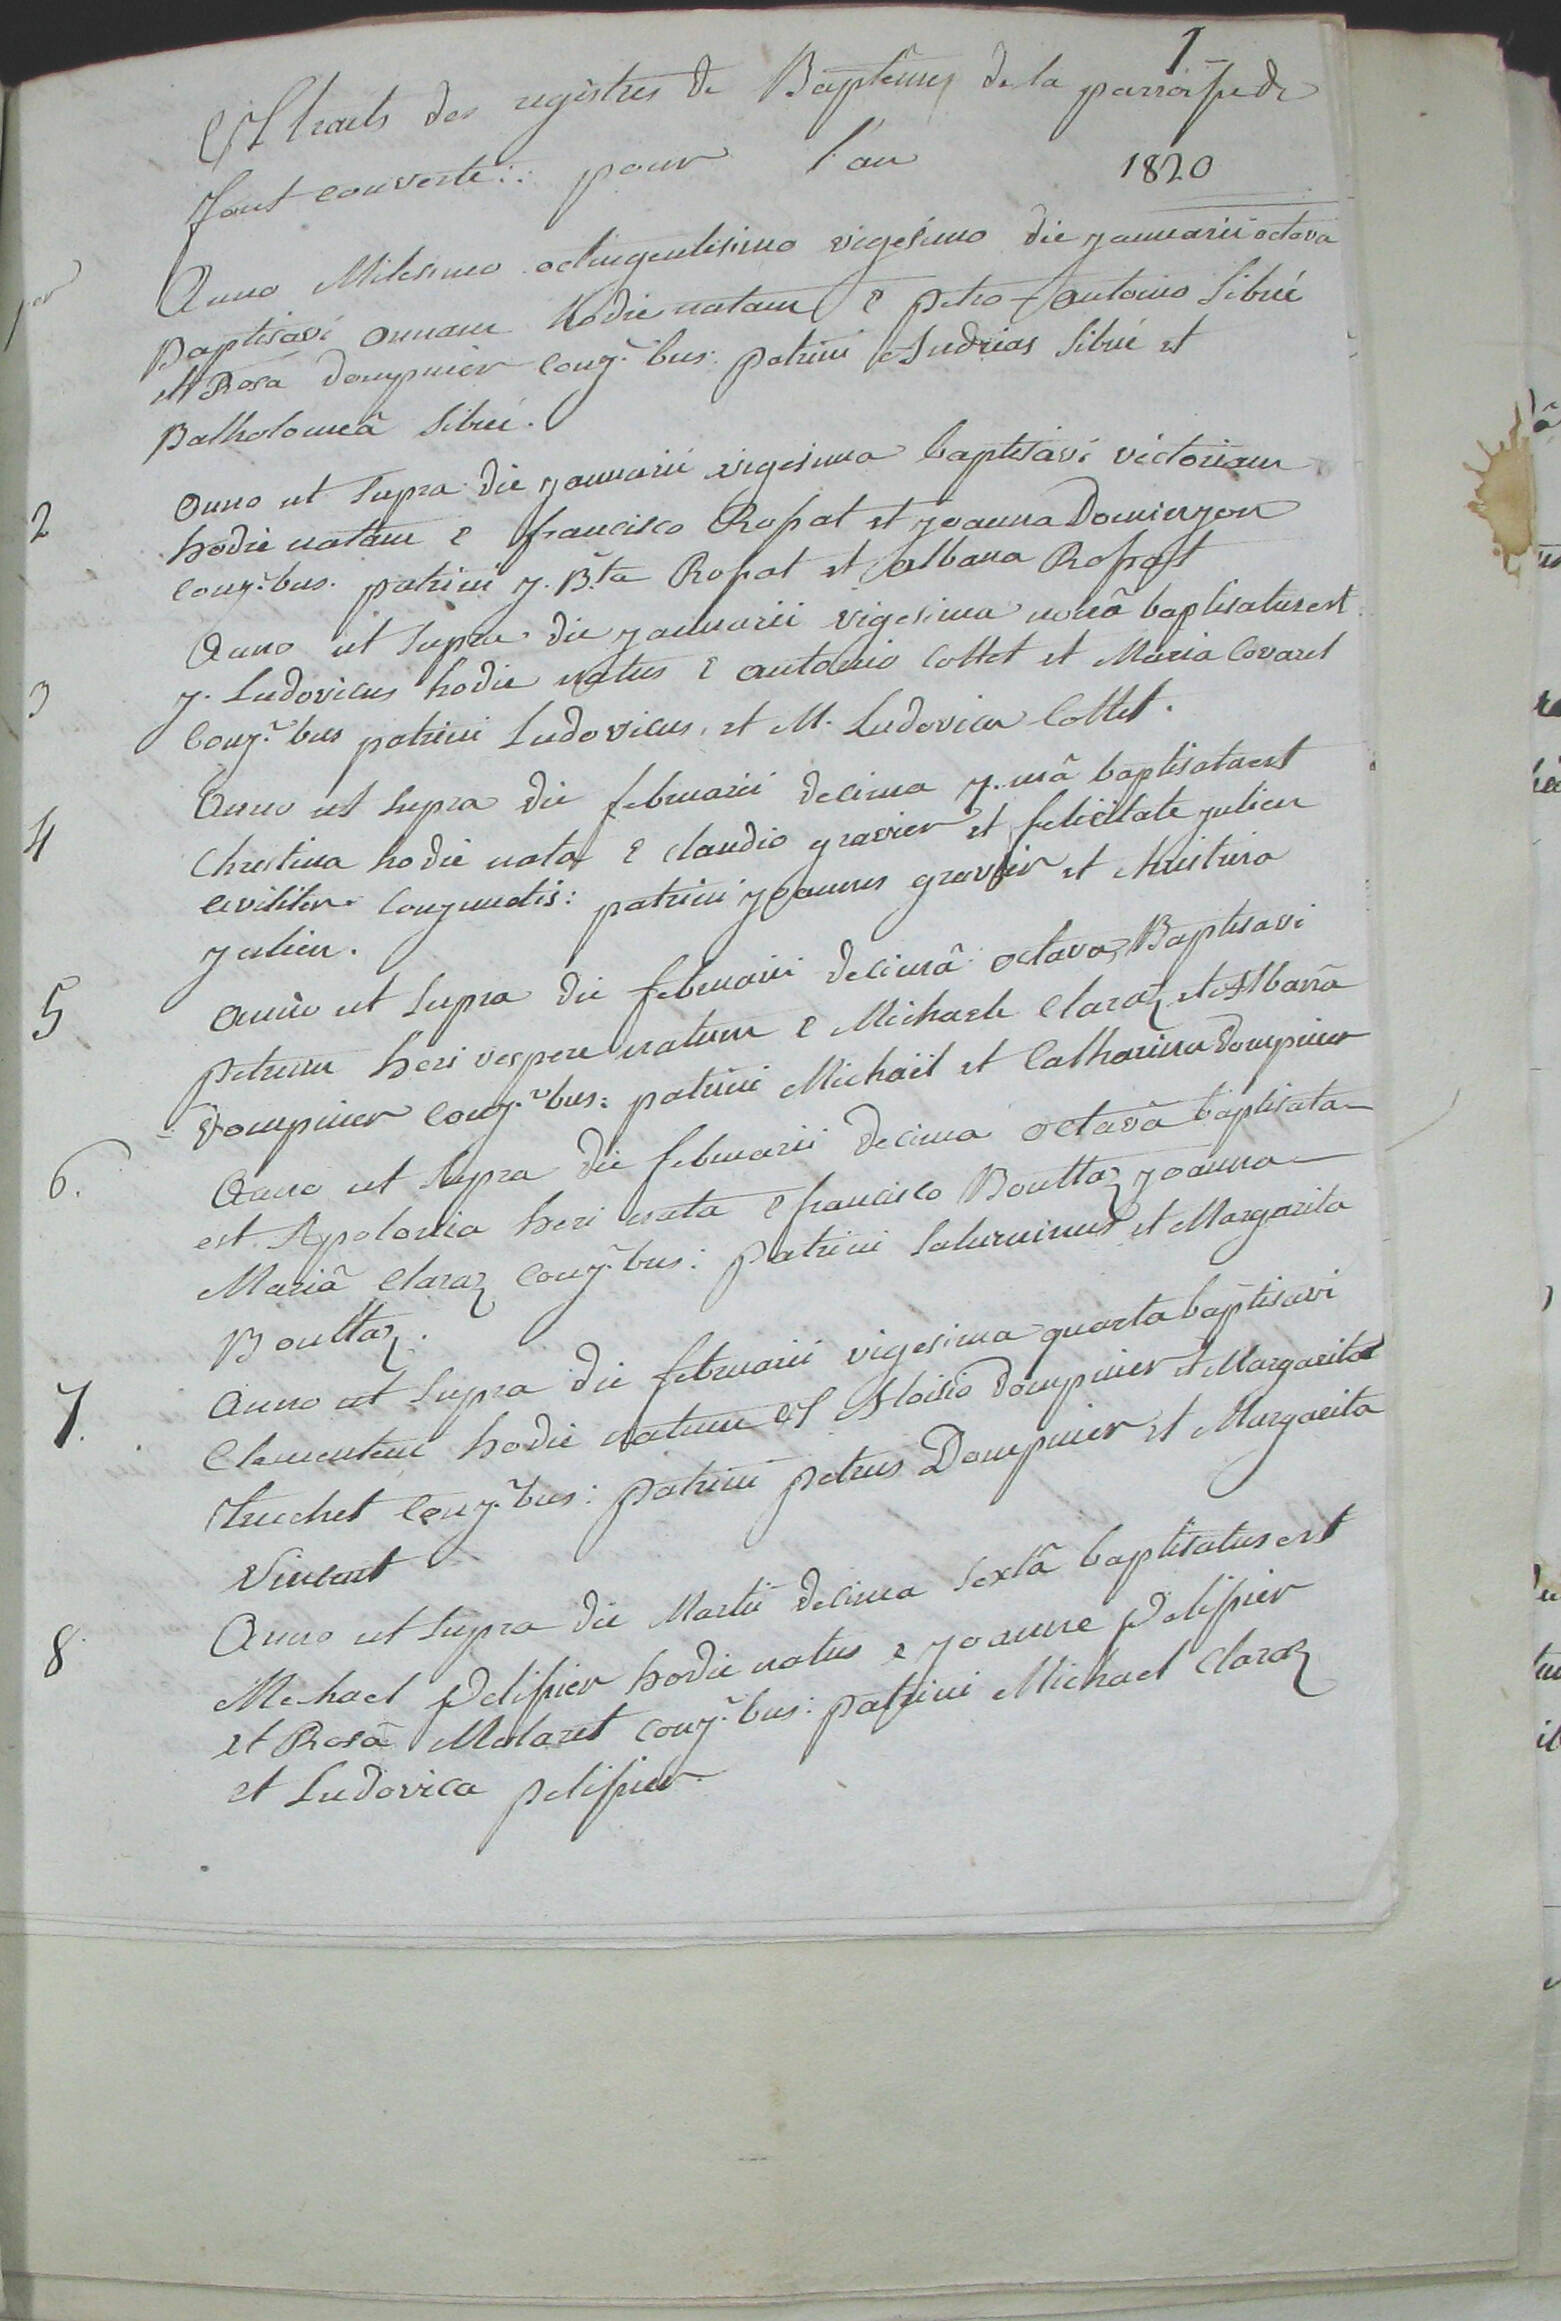 1
Extraits des registres de Baptêmes de la parroisse de
font couverte :: pour l'an 1820
1er
Anno Milesimo octingentesimo vigesimo die januarii octava
Baptisavi annam hodie natam e petro-antonio Sibué
et Rosa dompnier conj.bus: patrini Andreas Sibué et
Batholomeâ Sibué.
2
Anno ut supra die januarii vigesima baptisavi victoriam
hodie natam e francisco Rossat et joanna Domenjon
conj.bus. patrini j. B.ta Rossat et albana Rossat
3
Anno ut supra die januarii vigesima nonâ baptisatus est
j. Ludovicus hodie natus e antonio Collet et Maria Covarel
conj.bus patrini Ludovicus, et M. Ludovica Collet.
4
Anno ut supra die februarii decima 7.mâ baptisata est
Christina hodie nata e claudio gravier et felicitate julien
civiliter conjunctis: patrini joannes gravier et christina
julien.
5
Anno ut supra die februarii decimâ octava, Baptisavi
petrum heri vespere natum e Michaele Claraz et Albanâ
dompnier conj.bus: patrini Michaël et Catharina dompnier
6.
Anno ut supra die februarii decima octavâ baptisata
est Appolonia heri nata e francisco Bouttaz joanna
Mariâ Claraz conj.bus: patrini Saturninus et Margarita
Bouttaz.
7.
Anno ut supra die februarii vigesima quarta baptisavi
Clementem hodie natum ex Aloisio dompnier et Margarita
truchet conj.bus: patrini petrus Dompnier et Margarita
Vincent
8
Anno ut supra die Martii decima sextâ baptisatus est
Michael pelissier hodie natus e joanne pelissier
et Rosâ Molaret conj.bus: patrini Michael Claraz
et Ludovica pelissier.